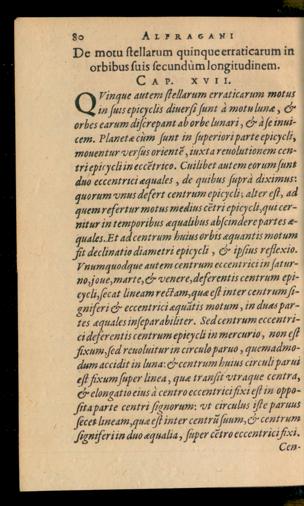 80 ALFRAGANI
De motu stellarum quinque erraticarum in
orbibus suis secundùm longitudinem.
CAP. XVII.
QVinque autem stellarum erraticarum motus
in suis epicyclis diuersi sunt à motu lunæ, &
orbes earum discrepant ab orbe lunari, & à se inui-
cem. Planetæ cùm sunt in superiori parte epicycli,
mouentur versus orientē, iuxta reuolutionem cen-
tri epicycli in eccētrico. Cuilibet autem eorum sunt
duo eccentrici æquales, de quibus suprà diximus:
quorum vnus defert centrum epicycli: alter est, ad
quem refertur motus medius cētri epicycli, qui cer-
nitur in temporibus æqualibus abscindere partes æ-
quales. Et ad centrum huius orbis æquantis motum
fit declinatio diametri epicycli, & ipsius reflexio.
Vnumquodque autem centrum eccentrici in satur-
no, ioue, marte, & venere, deferentis centrum epi-
cycli, secat lineam rectam, quæ est inter centrum si-
gniferi & eccentrici æquātis motum, in duas par-
tes æquales inseparabiliter. Sed centrum eccentri-
ci deferentis centrum epicycli in mercurio, non est
fixum, sed reuoluitur in circulo paruo, quemadmo-
dum accidit in luna: & centrum huius circuli parui
est fixum super linea, quæ transit vtraque centra,
& elongatio eius à centro eccentrici fixi est in oppo-
sita parte centri signorum: vt circulus iste paruus
secet lineam, quæ est inter centrū suum, & centrum
signiferi in duo æqualia, super cētro eccentrici fixi.
Cen-